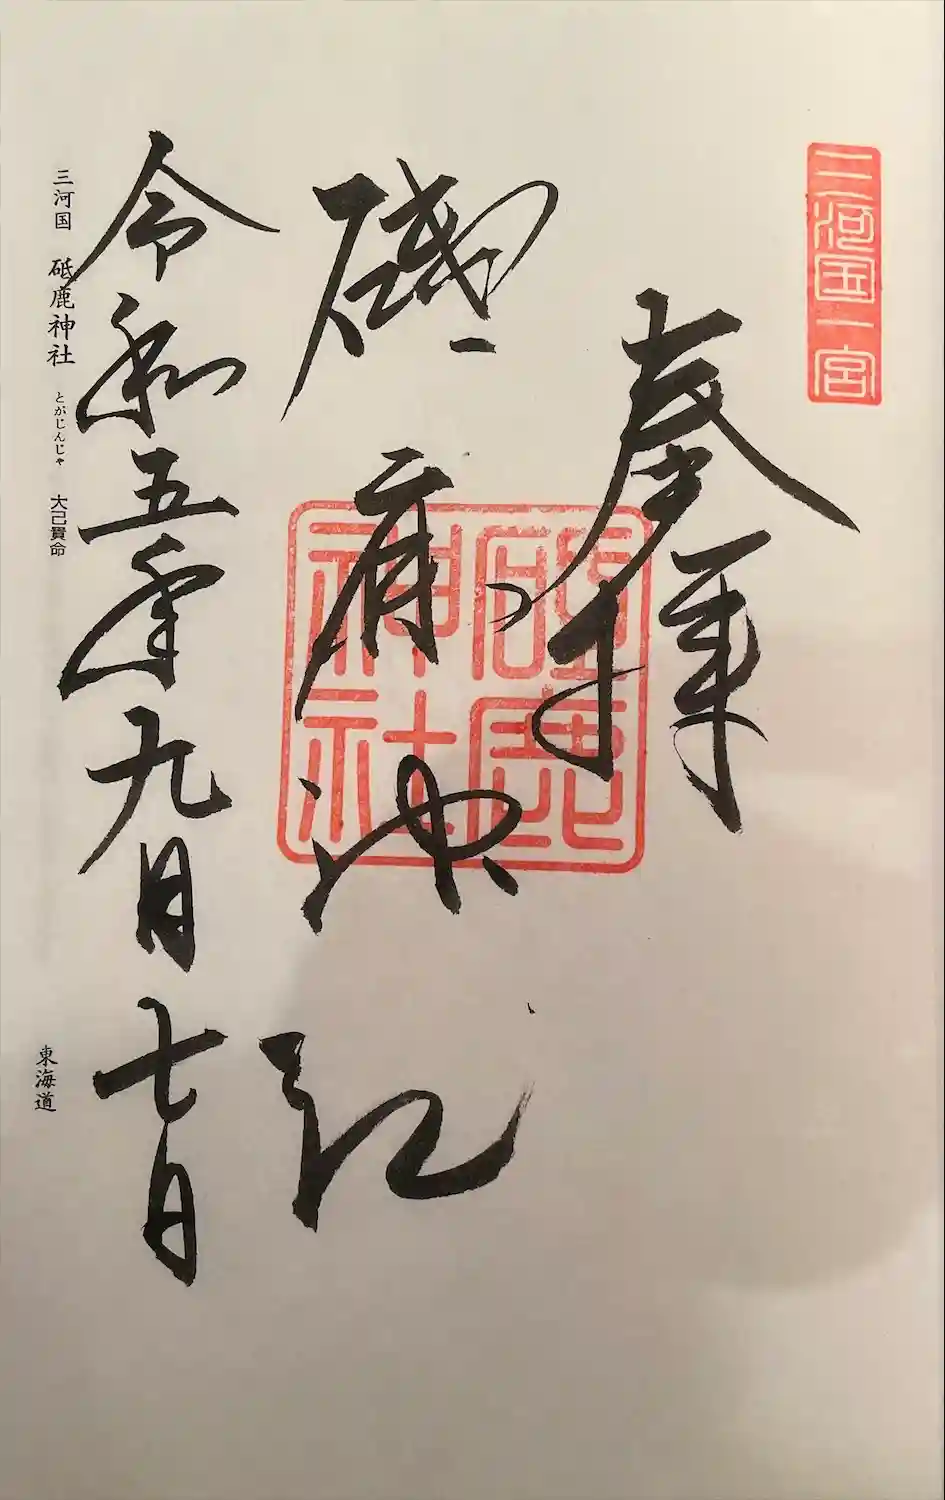 三河国一宮
奉拝
砥鹿神社
砥鹿神社
令和五年九月七日
三河国 砥鹿神社 とがじんじゃ 大己貴命
東海道